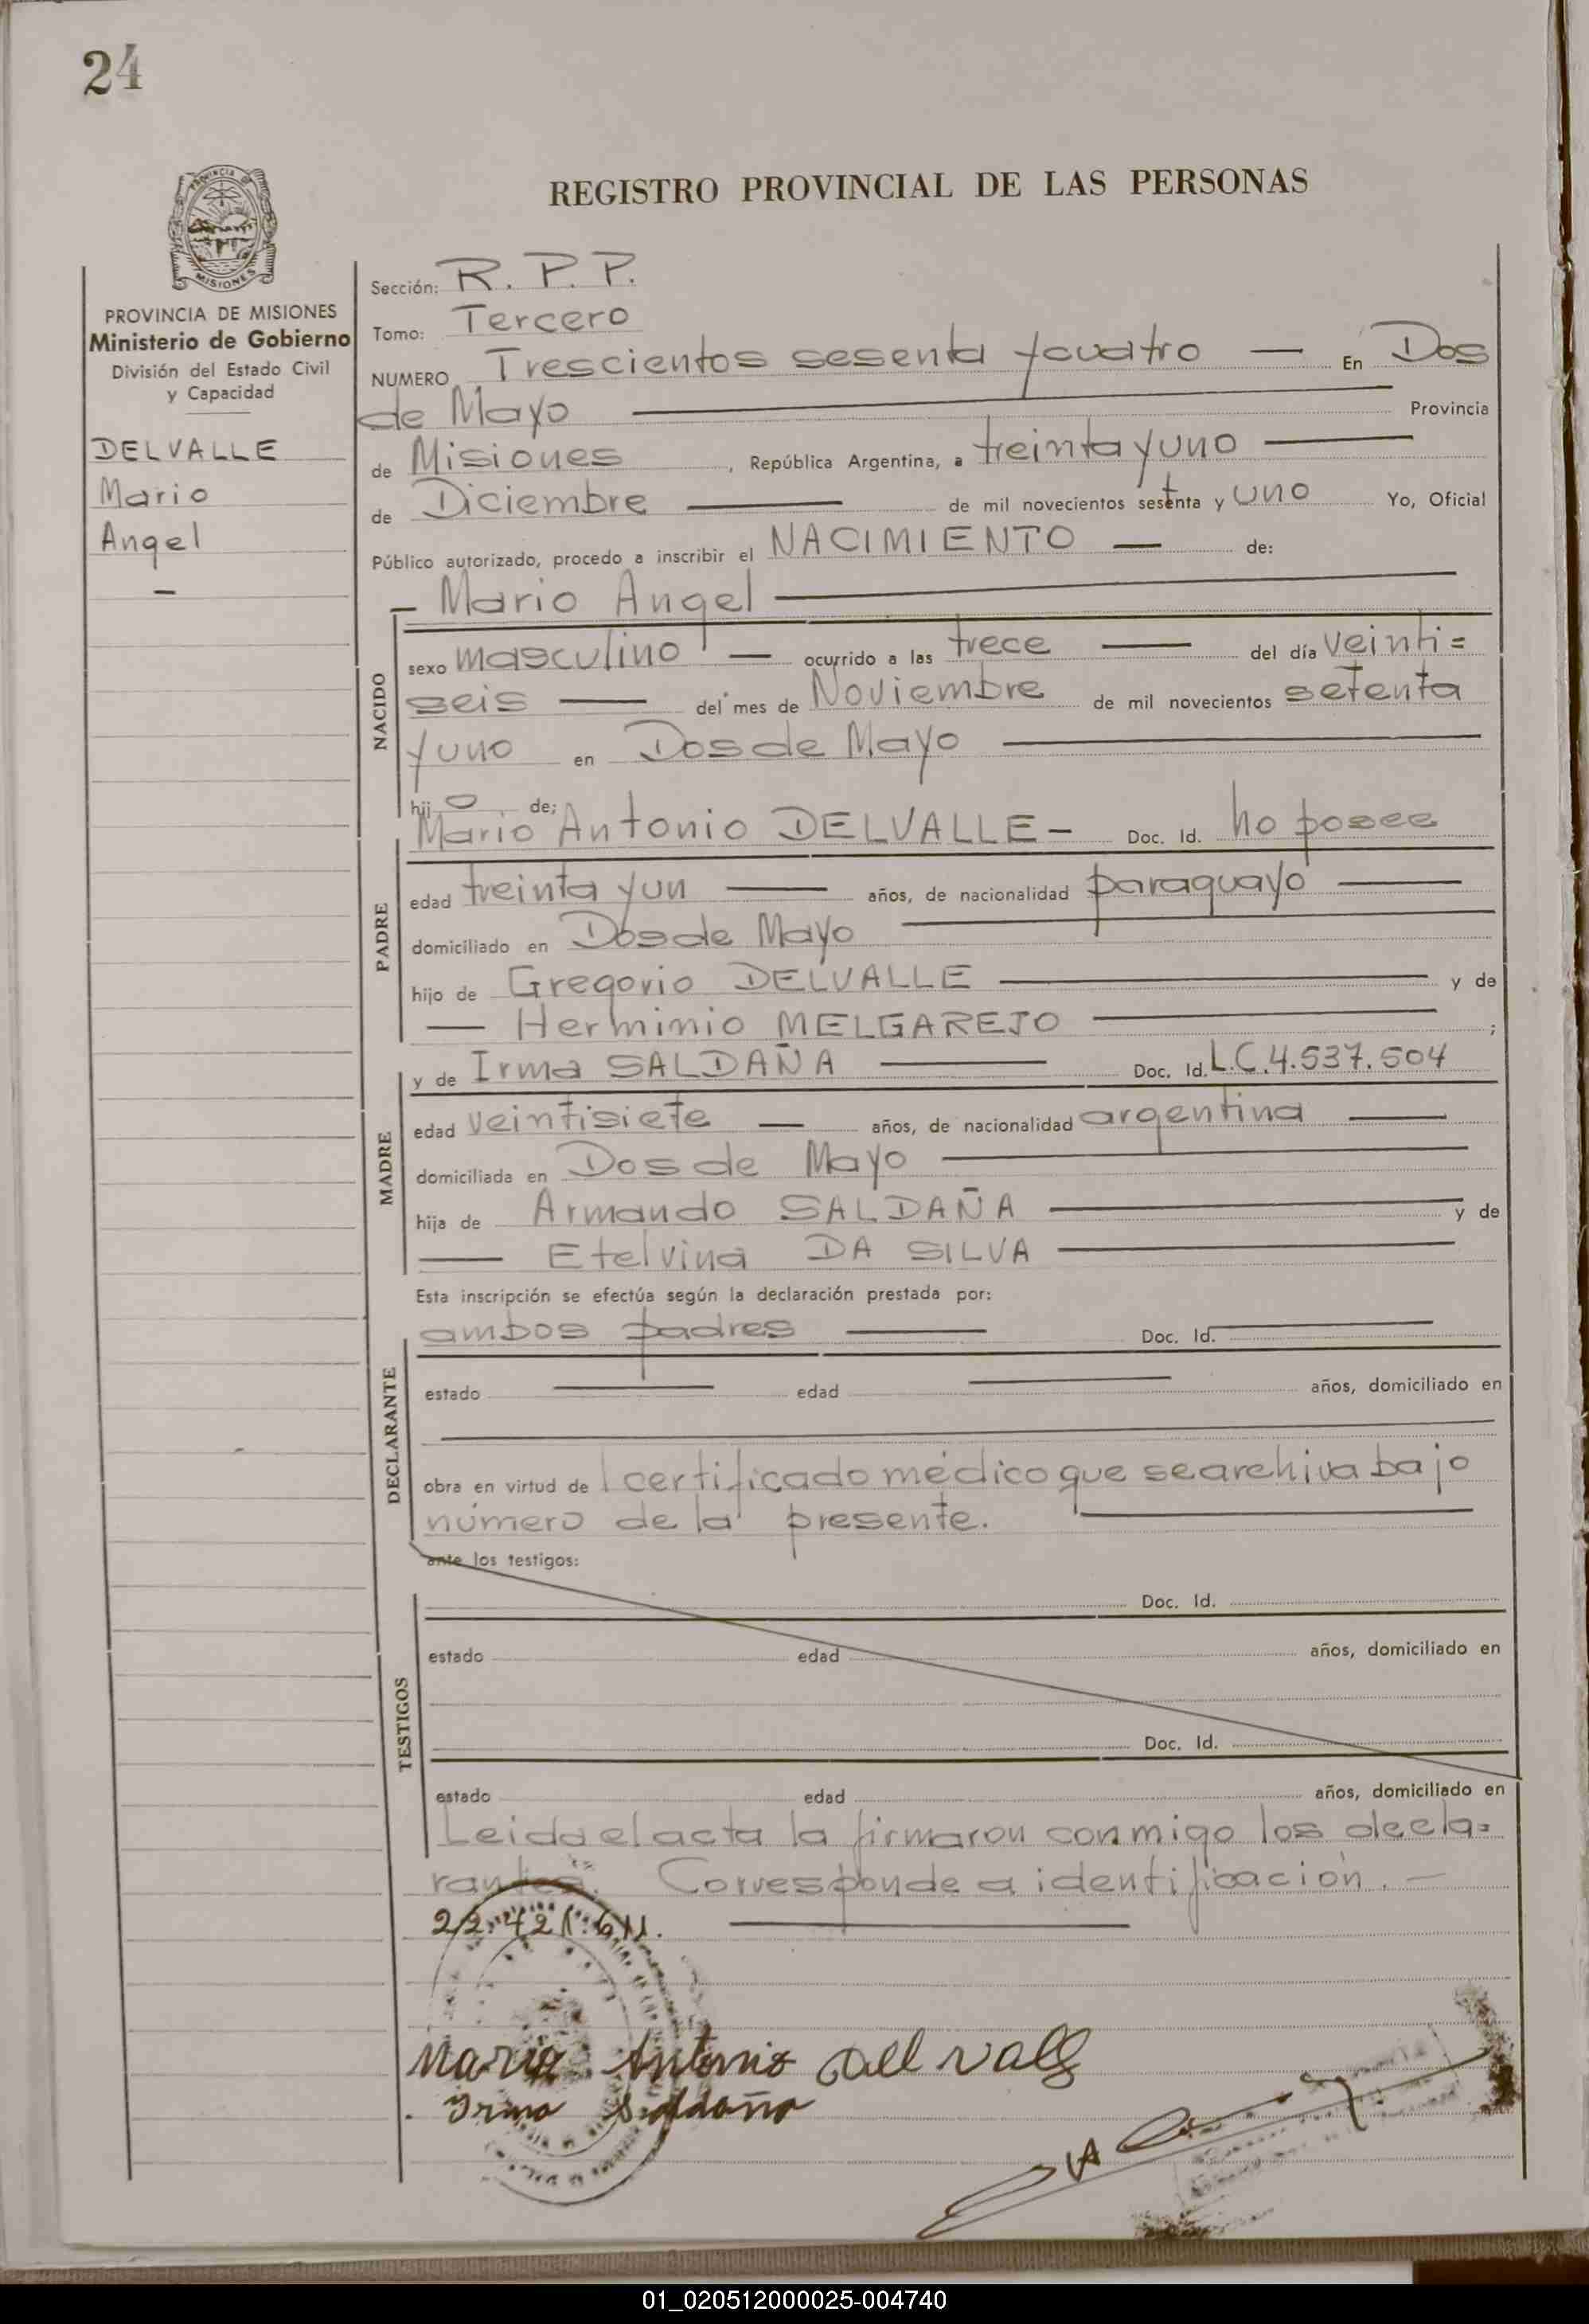 24
PROVINCIA DE MISIONES
Ministerio de Gobierno
División del Estado Civil
y Capacidad
DELVALLE
Mario
Angel
REGISTRO PROVINCIAL DE LAS PERSONAS
Sección: R. P. P.
Tomo: Tercero
NUMERO Trescientos sesenta y cuatro — En Dos
de Mayo — Provincia
de Misiones, República Argentina, a treinta y uno —
de Diciembre — de mil novecientos setenta y uno Yo, Oficial
Público autorizado, procedo a inscribir el NACIMIENTO — de:
– Mario Angel —
NACIDO
sexo masculino — ocurrido a las trece — del día veinti=
seis — del mes de Noviembre de mil novecientos setenta
y uno en Dos de Mayo —
hijo de:
Mario Antonio DELVALLE – Doc. Id. no posee
PADRE
edad treinta y un — años, de nacionalidad paraguayo —
domiciliado en Dos de Mayo —
hijo de Gregorio DELVALLE — y de
— Herminio MELGAREJO — ;
y de Irma SALDAÑA — Doc. Id. L.C.4.537.504
MADRE
edad veintisiete — años, de nacionalidad argentina —
domiciliada en Dos de Mayo —
hija de Armando SALDAÑA — y de
— Etelvina DA SILVA —
Esta inscripción se efectúa según la declaración prestada por:
ambos padres — Doc. Id. —
DECLARANTE
estado — edad — años, domiciliado en
obra en virtud de l certificado médico que se archiva bajo
número de la presente. —
ante los testigos:
Doc. Id.
TESTIGOS
estado edad años, domiciliado en
Doc. Id.
estado edad años, domiciliado en
Leida el acta la firmaron conmigo los decla=
rantes. Corresponde a identificación. –
Mario Antonio Del Valle
Irma Saldaña
01_020512000025-004740